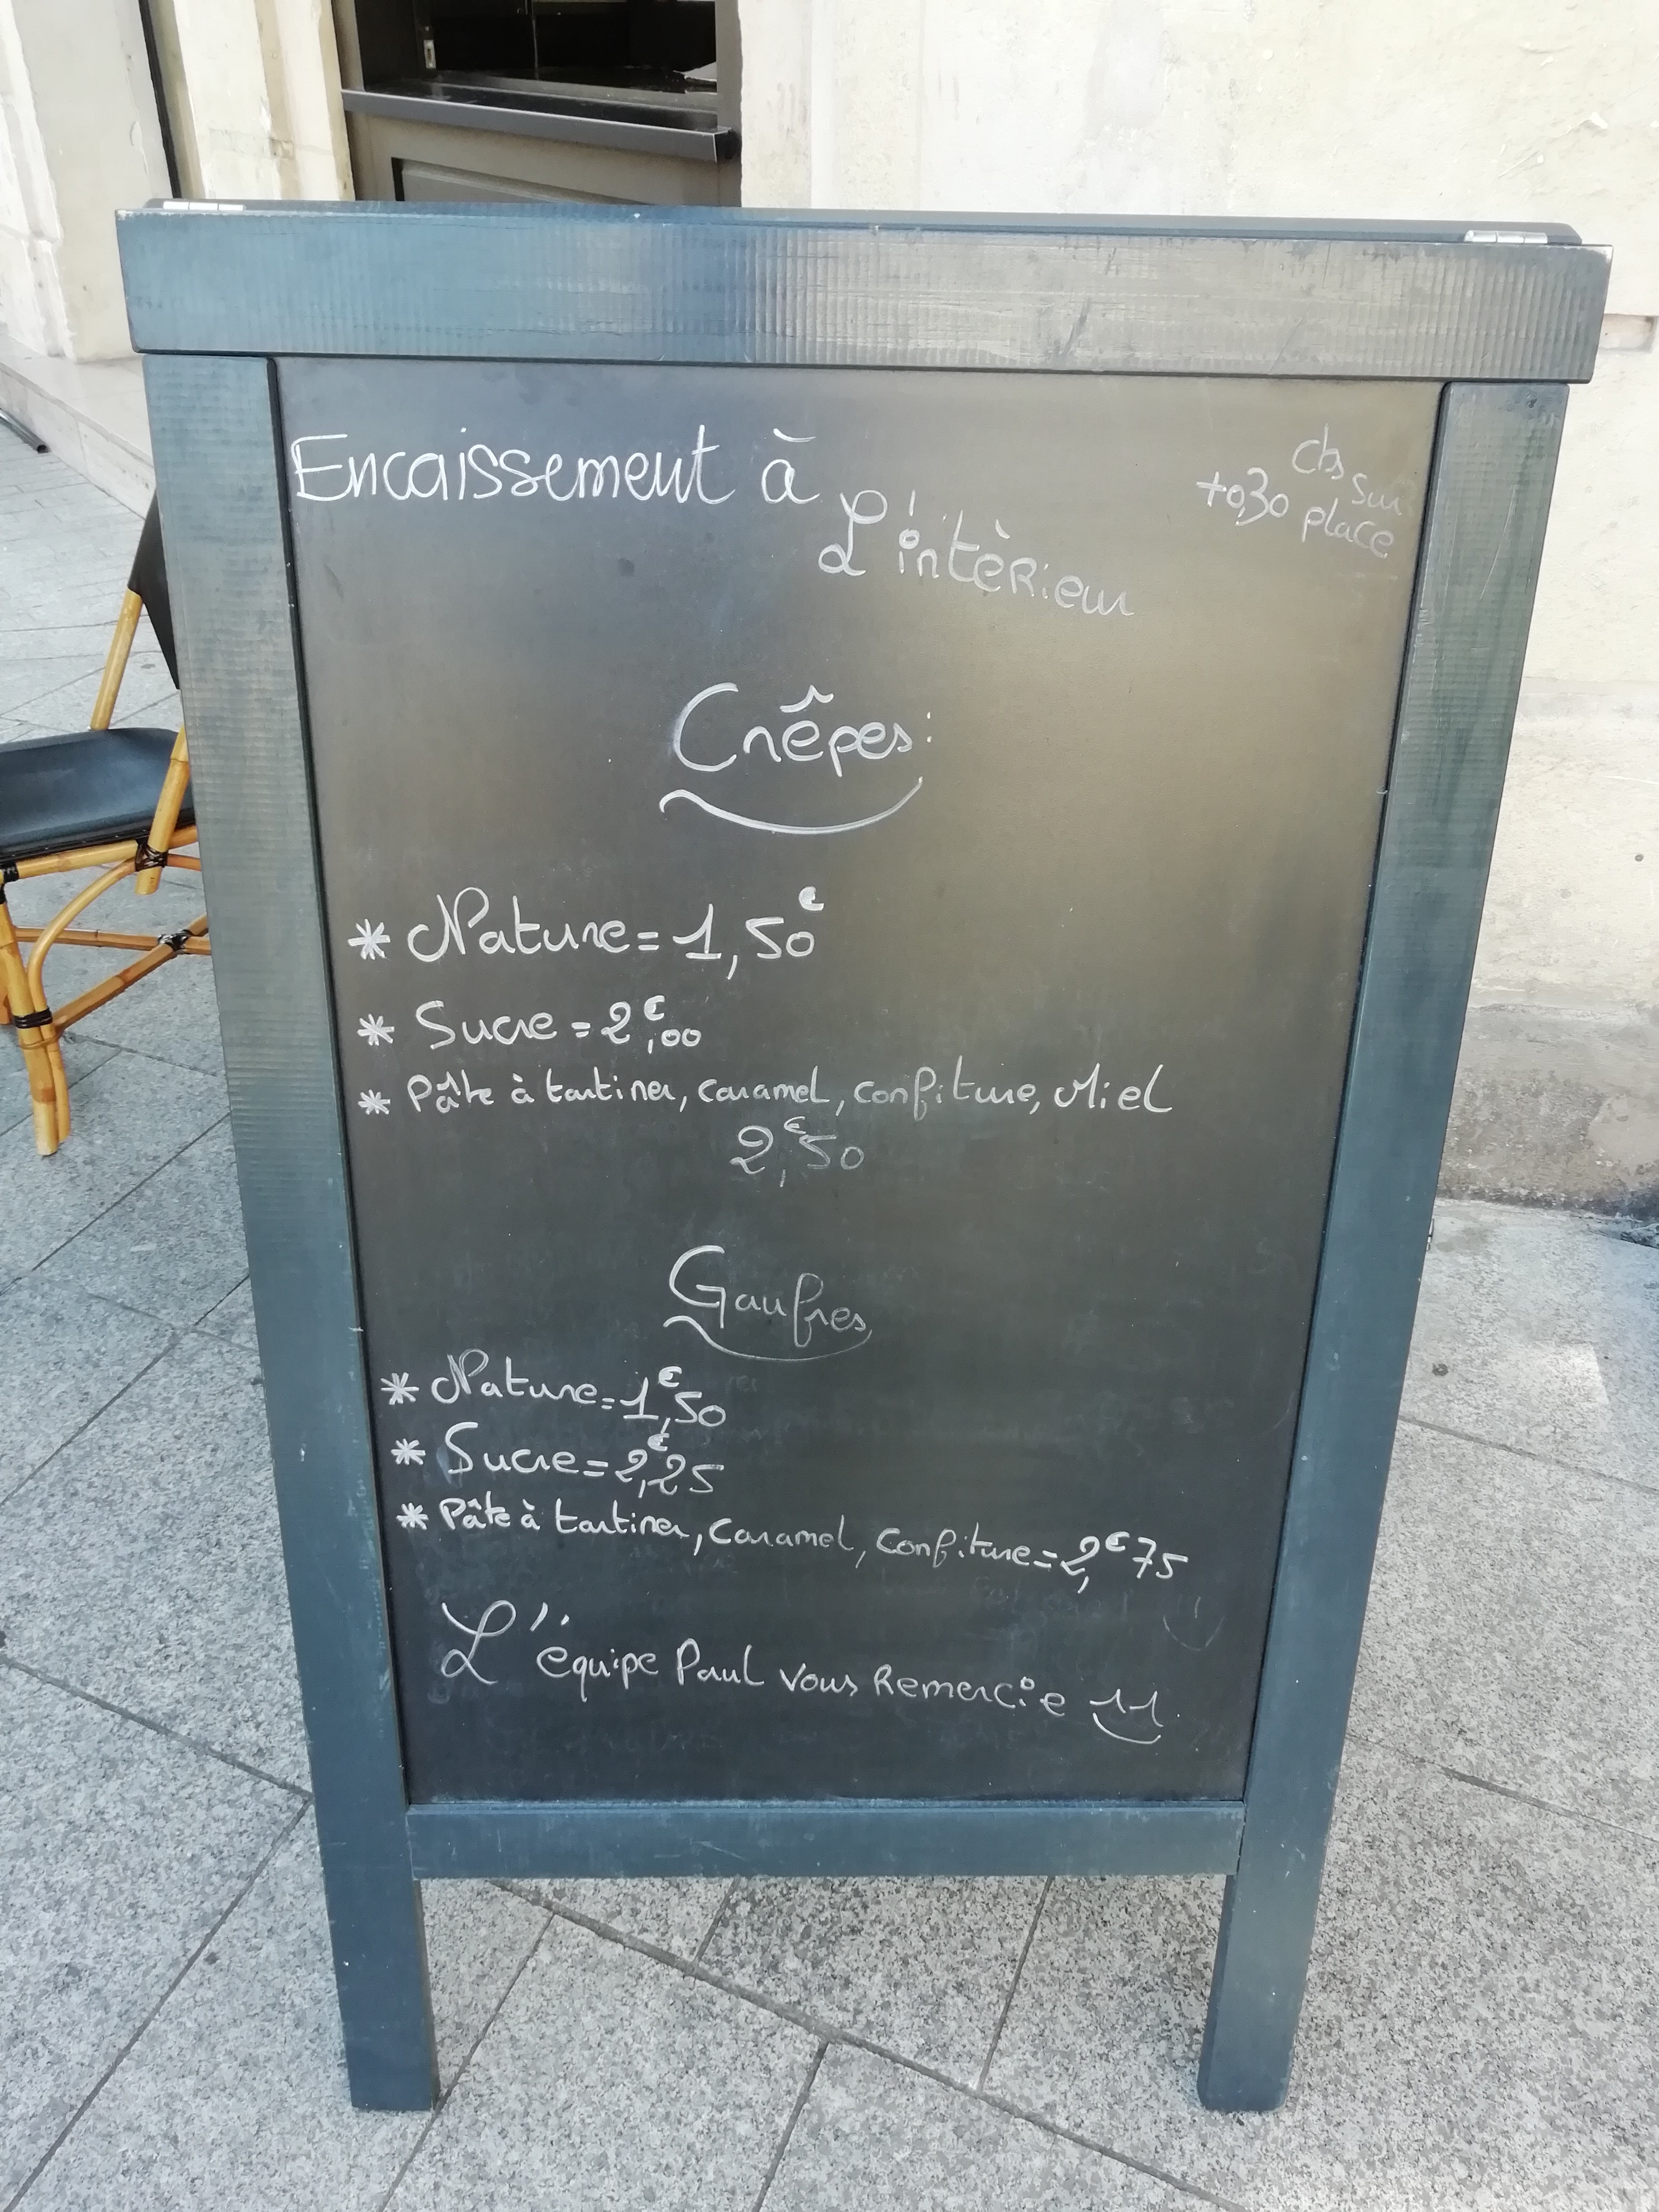 Encaissement à
L'intèrieur
cts sur
+0,30 place
Crêpes:
* Nature = 1,50€
* Sucre = 2€,00
* Pâte à tartiner, caramel, confiture, Miel
2,€50
Gaufres
* Nature = 1,€50
* Sucre = 2,€25
* Pâte à tartiner, caramel, confiture = 2,€75
L'équipe Paul vous Remercie